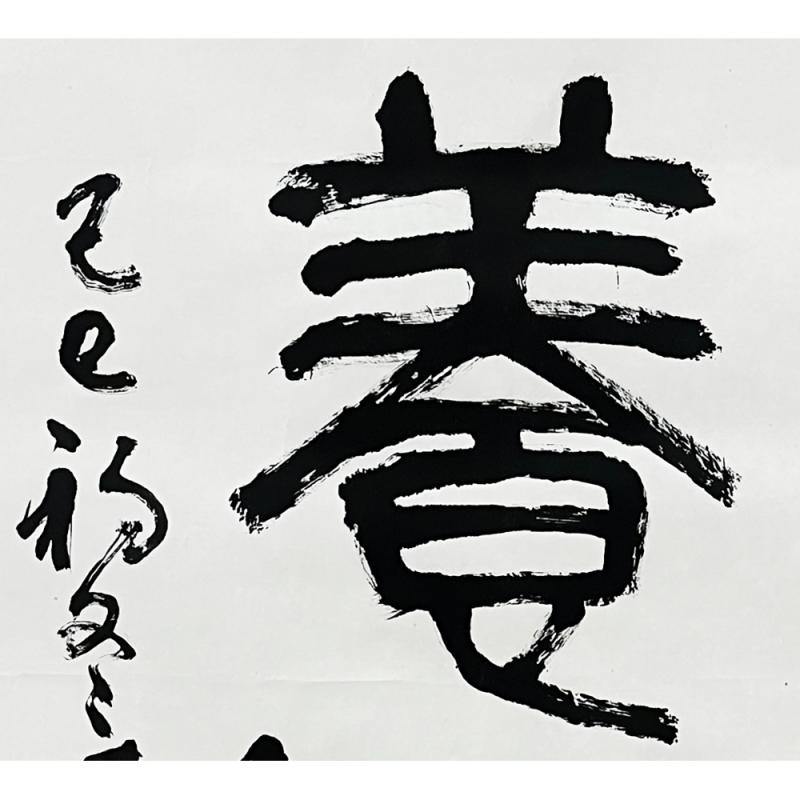 養
乙巳初冬